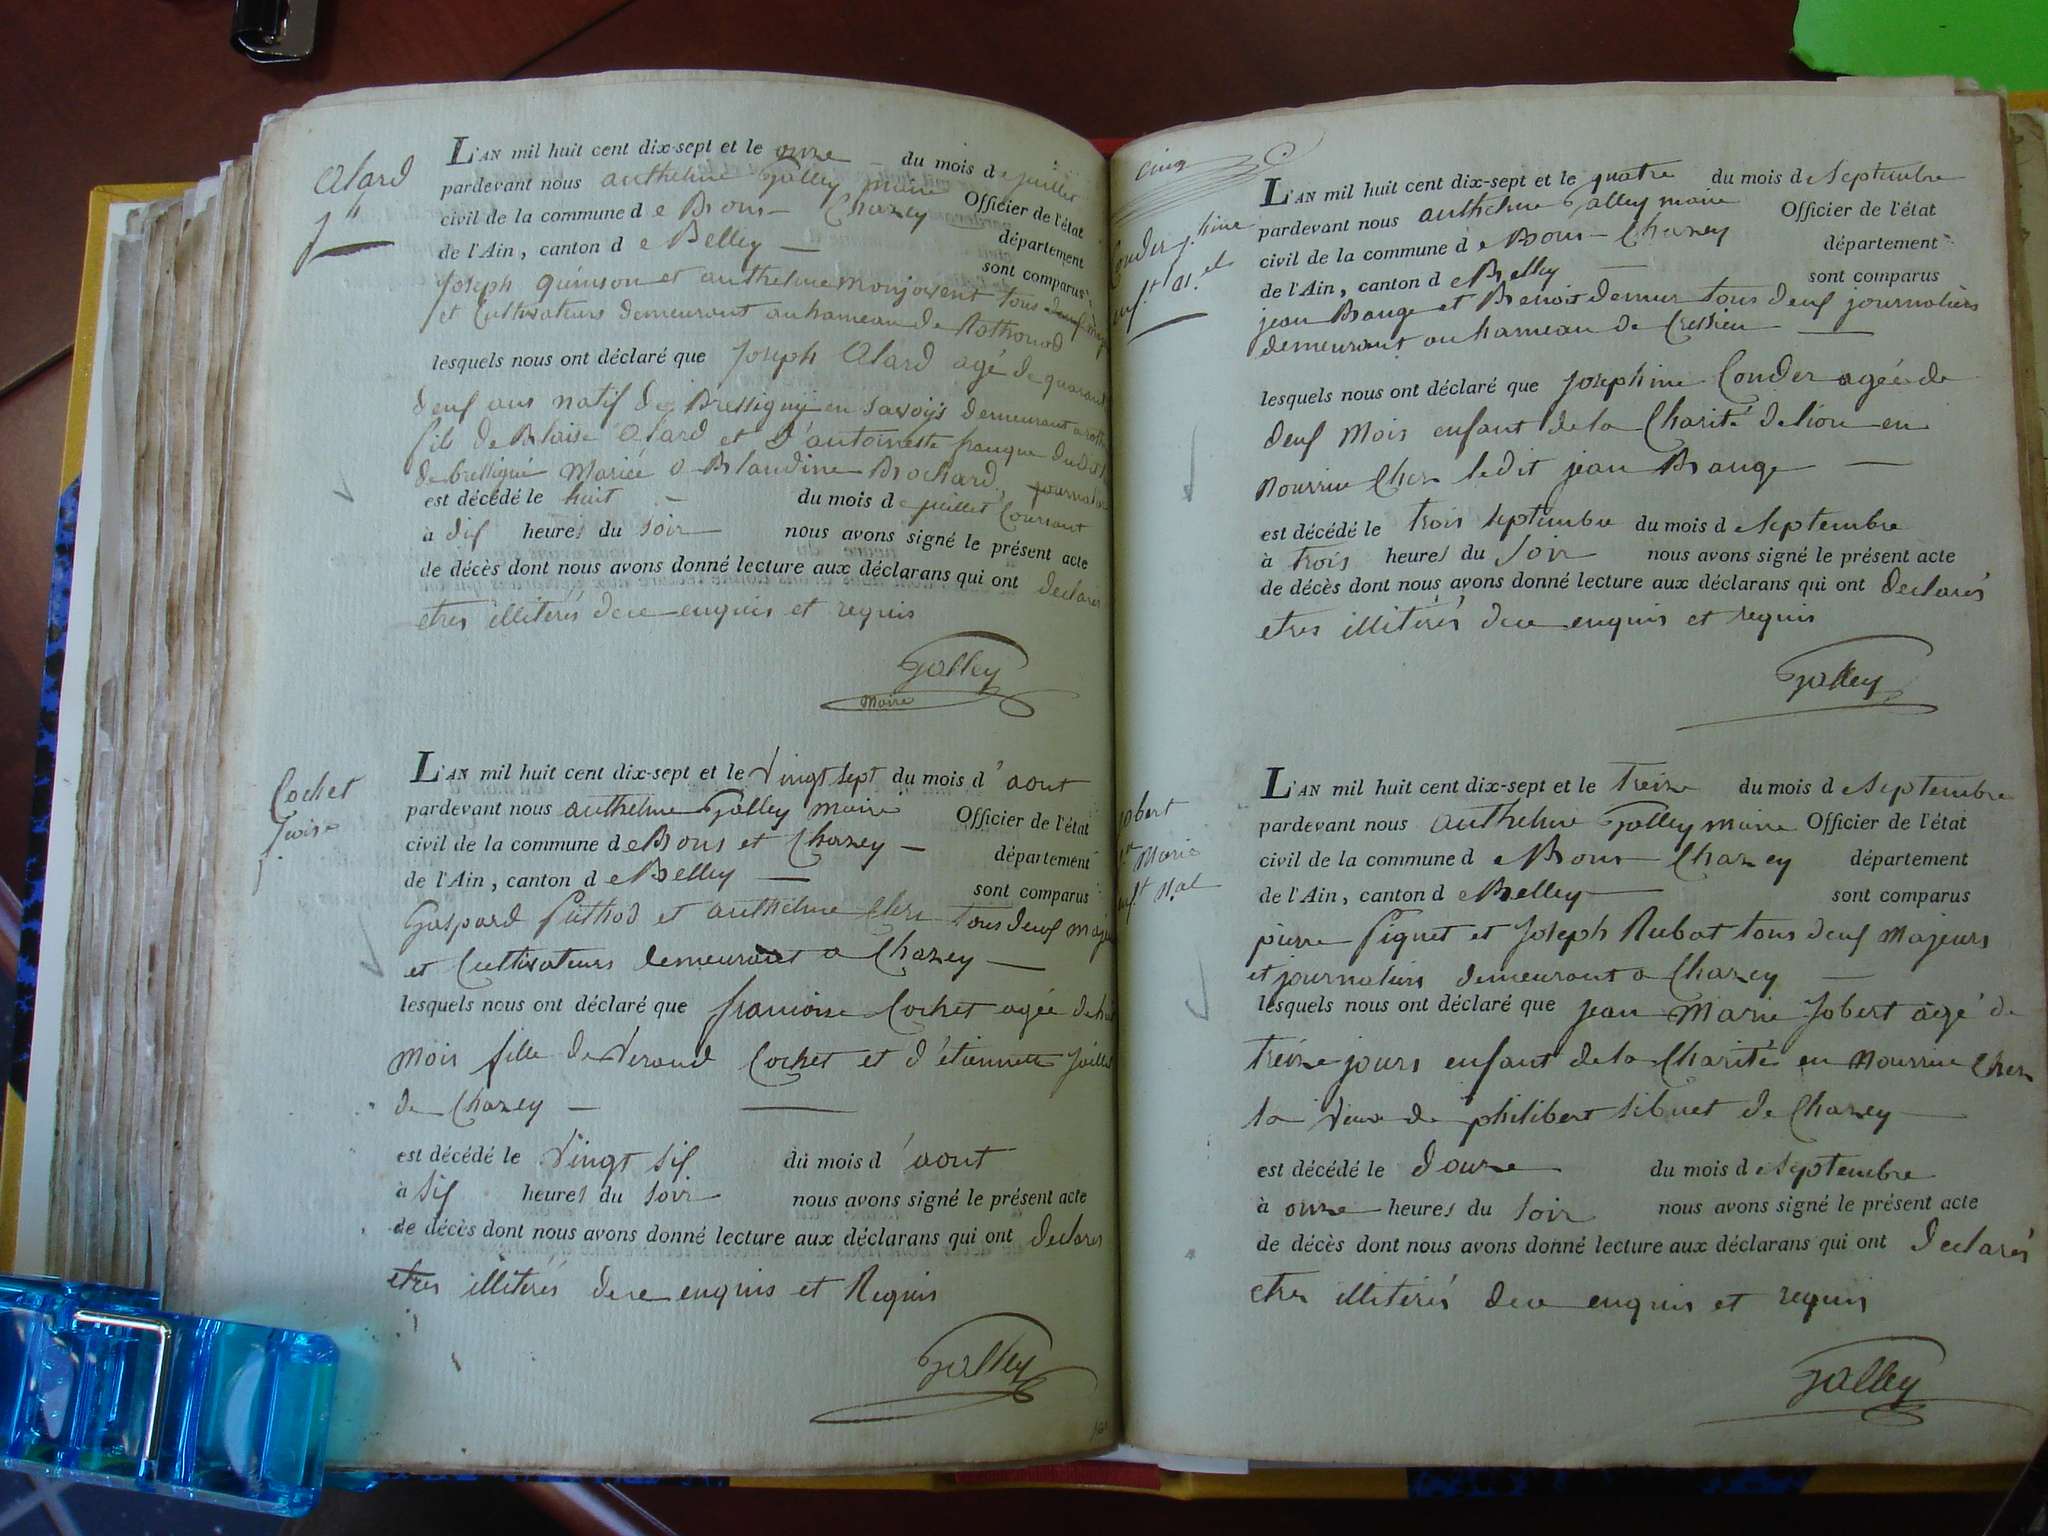 Alard
Jh
L'AN mil huit cent dix-sept et le onze du mois de juillet
pardevant nous anthelme Galley maire Officier de l'état
civil de la commune de Bons Chazey département
de l'Ain, canton de Belley sont comparus
Joseph quinson et anthelme monjovent tous deux
et Cultivateurs demeurant au hameau de Rothonod
lesquels nous ont déclaré que Joseph Alard agé de quarante
deux ans natif de Bressigny en savoys demeurant a
fils de Blaise Alard et D'antoinette franque dudit
de bressigné Mariée a Blandine Brochard journalier
est décédé le huit du mois de juillet Courant
à dix heures du soir nous avons signé le présent acte
de décès dont nous avons donné lecture aux déclarans qui ont declarés
etres illiterés de ce enquis et requis
Galley
Maire
Cochet
L'AN mil huit cent dix-sept et le Vingt sept du mois d'aout
pardevant nous anthelme Galley maire Officier de l'état
civil de la commune de Bons et Chazey département
de l'Ain, canton de Belley sont comparus
Gaspard Puthod et anthelme tous deux
et Cultivateurs demeurant a Chazey
lesquels nous ont déclaré que francoise Cochet agée de
mois fille de Verand Cochet et d'étiennette
de Chazey
est décédé le Vingt six du mois d'aout
à six heures du soir nous avons signé le présent acte
de décès dont nous avons donné lecture aux déclarans qui ont declarés
etres illiterés de ce enquis et Requis
Galley
cinq
Conder
L'AN mil huit cent dix-sept et le quatre du mois de Septembre
pardevant nous anthelme Galley maire Officier de l'état
civil de la commune de Bons Chazey département
de l'Ain, canton de Belley sont comparus
jean Bauge et Benoit demeur tous deux journaliers
demeurant au hameau de Cressieu
lesquels nous ont déclaré que Josephine Conder agée de
deux mois enfant de la Charité de lion en
nourrice Chez ledit jean Bauge
est décédé le trois septembre du mois de Septembre
à trois heures du soir nous avons signé le présent acte
de décès dont nous avons donné lecture aux déclarans qui ont declarés
etres illiterés de ce enquis et requis
Galley
Jobert
Marie
L'AN mil huit cent dix-sept et le treize du mois de Septembre
pardevant nous anthelme Galley maire Officier de l'état
civil de la commune de Bons Chazey département
de l'Ain, canton de Belley sont comparus
pierre Piquet et Joseph Rubat tous deux Majeurs
et journaliers demeurant a Chazey
lesquels nous ont déclaré que jean Marie Jobert agé de
treize jours enfant de la Charité en nourrice Chez
la Veuve de philibert sibuet de Chazey
est décédé le douze du mois de Septembre
à onze heures du soir nous avons signé le présent acte
de décès dont nous avons donné lecture aux déclarans qui ont declarés
etres illiterés de ce enquis et requis
Galley